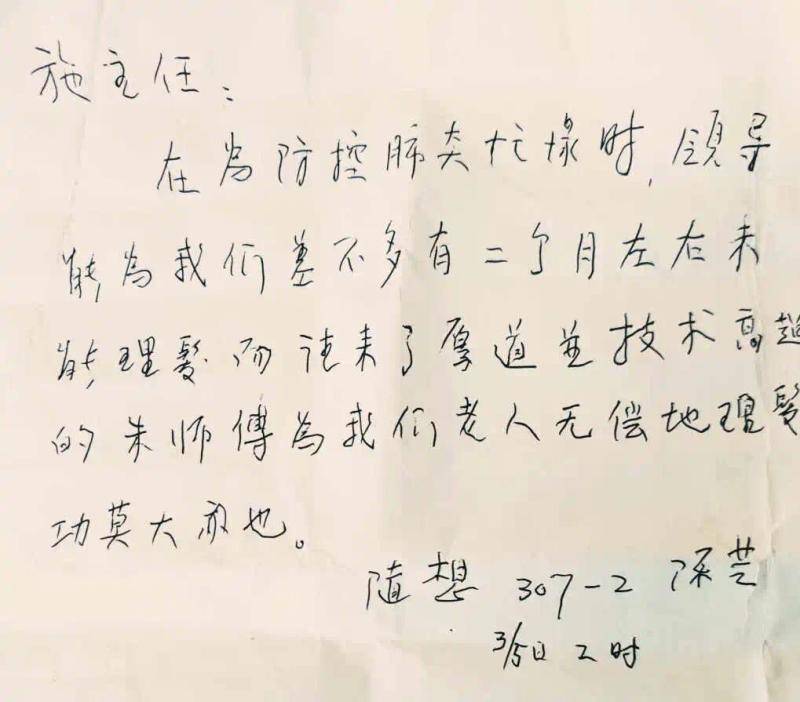 施主任：
在為防控肺炎忙碌时，领导
能為我们差不多有二个月左右未
能理髮而请来了厚道並技术高超
的朱师傅為我们老人无偿地理髮
功莫大焉也。
随想 307-2 陈芸
3/5日 2时